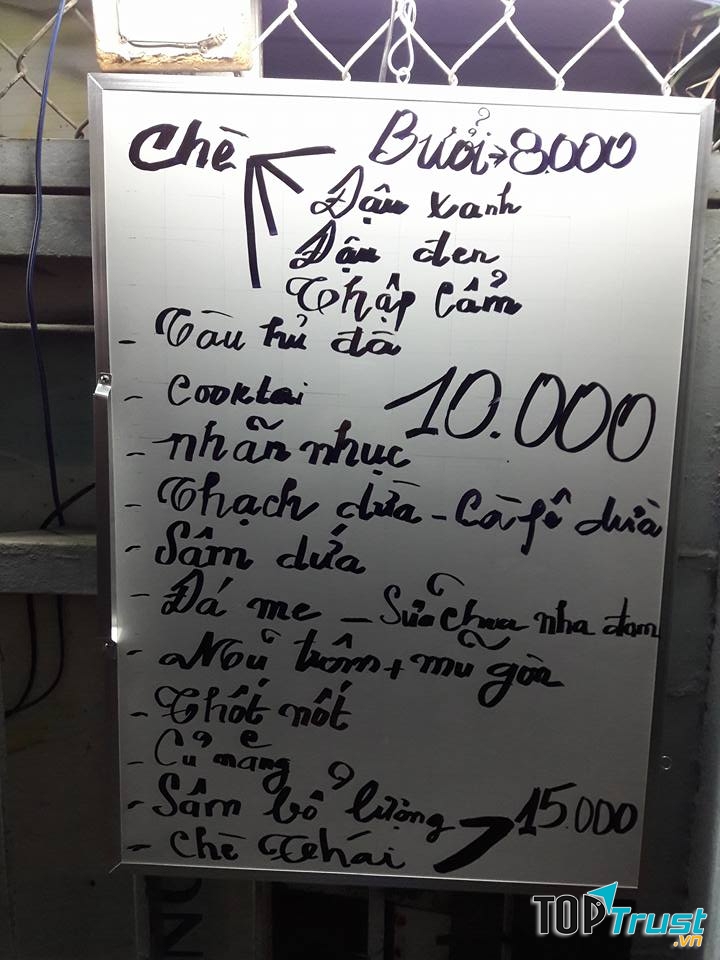 Chè Bưởi → 8.000
Đậu xanh
Đậu đen
Thập Cẩm
- Tàu hủ đá
- Cooktai 10.000
- nhãn nhục
- Thạch dừa - Cà fê dừa
- Sâm dứa
- Đá me - Sữa chua nha đam
- Mủ trôm + mũ gòn
- Thốt nốt
- Củ năng
- Sâm bổ lượng 15.000
- Chè Thái
TOPTrust.vn